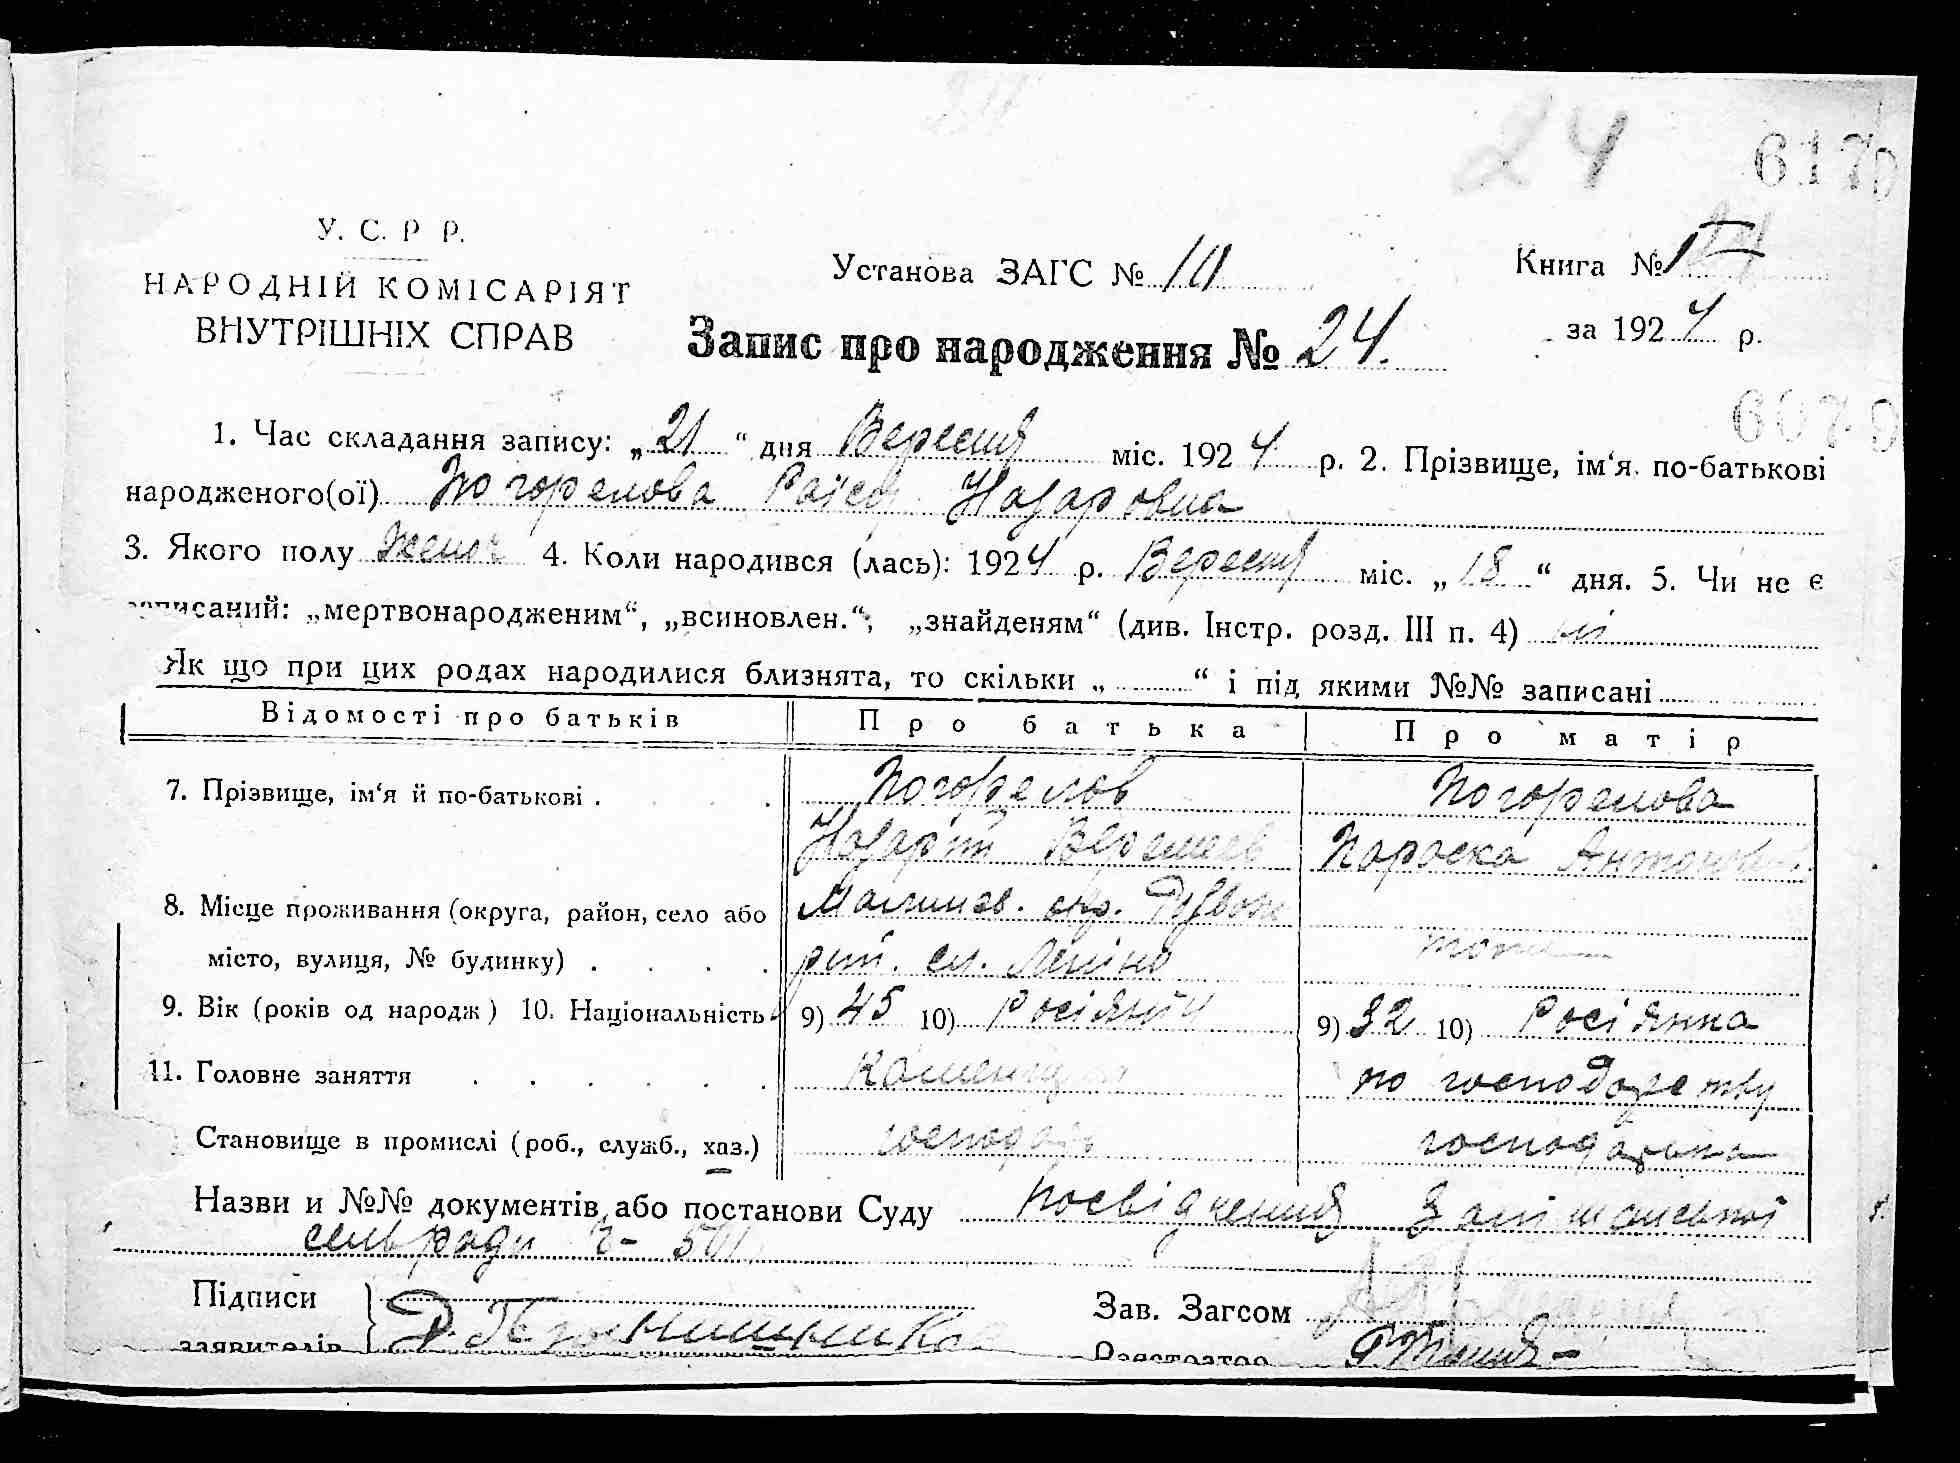 24
617
У. С. Р Р.
НАРОДНІЙ КОМІСАРІЯТ
ВНУТРІШНІХ СПРАВ
Установа ЗАГС № 10
Книга №
Запис про народження № 24.
за 1924 р.
607
1. Час складання запису: „21“ дня Вересня міс. 1924 р. 2. Прізвище, ім‘я по-батькові
народженого(ої) Погорелова Раїса Назаровна
3. Якого полу женоч 4. Коли народився (лась): 1924 р. Вересня міс. „18“ дня. 5. Чи не є
записаний: „мертвонародженим“, „всиновлен.“, „знайденям“ (див. Інстр. розд. III п. 4) ні
Як що при цих родах народилися близнята, то скільки „ “ і під якими №№ записані
Відомості про батьків Про батька Про матір
7. Прізвище, ім‘я й по-батькові . Погорелов Погорелова
Назарій Параска
8. Місце проживання (округа, район, село або
місто, вулиця, № будинку) . рай. сл. тоже
9. Вік (років од народж) 10. Національність 9) 45 10) Росіянин 9) 32 10) Росіянка
11. Головне заняття по господарству
Становище в промислі (роб., служб., хаз.) господарь господарька
Назви и №№ документів або постанови Суду посвідчення
сельради
Підписи Зав. Загсом
заявителів Реєстратор